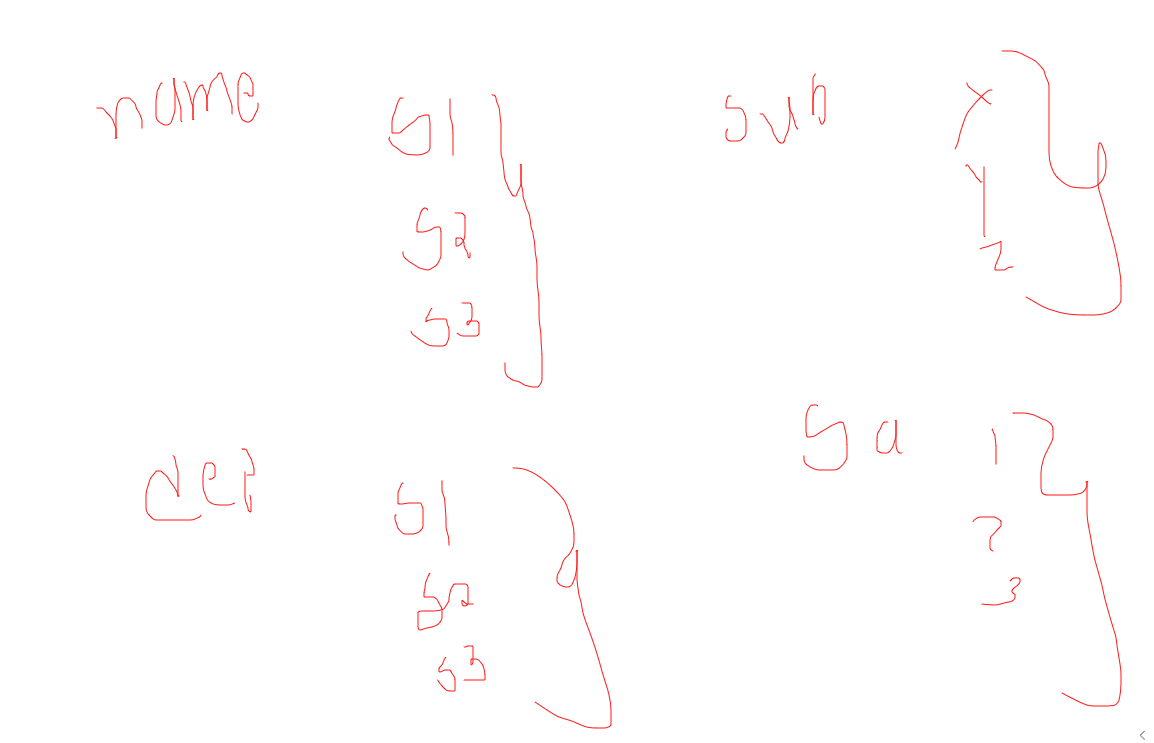 name
S1
S2
S3
sub
X
Y
Z
S1
S2
S3
Sa
1
3